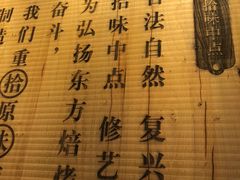 拾味中点
古法自然 复兴
拾味中点 修艺
为弘扬东方焙烤
奋斗，
我们重拾原味
制造